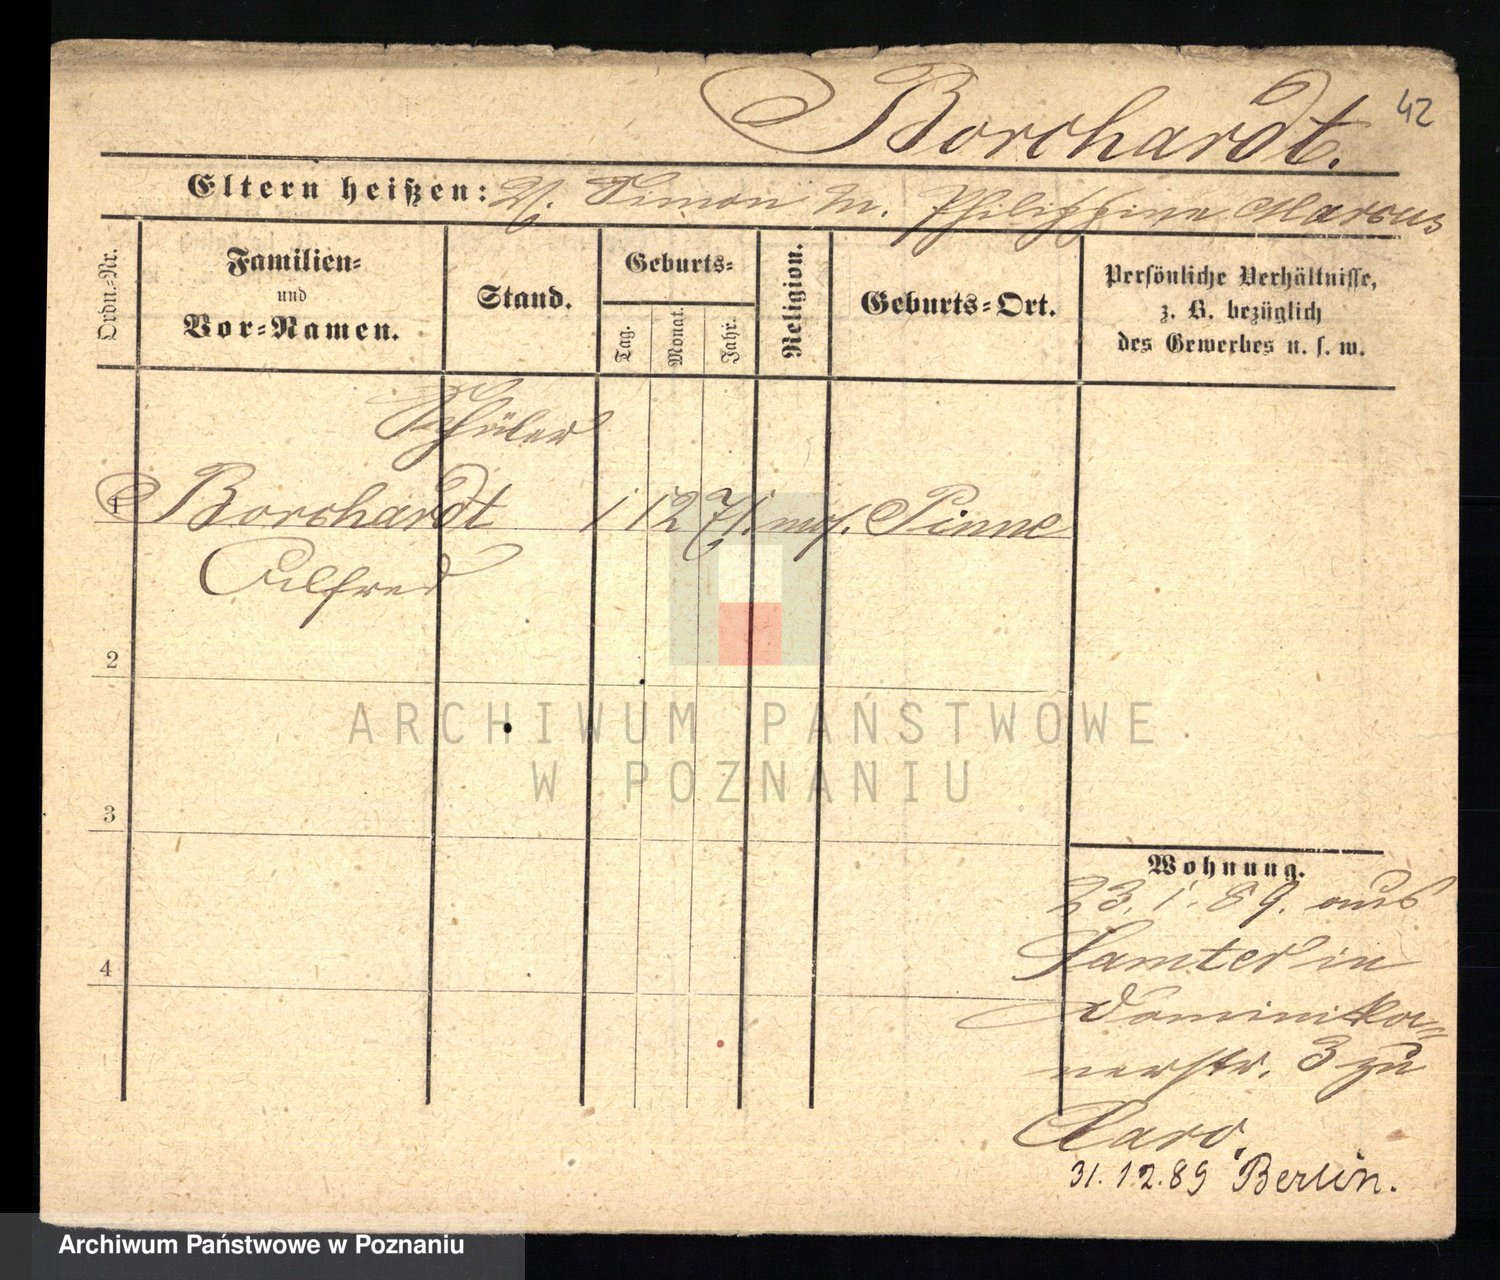 Borchardt.
42
Eltern heißen: V. Simon M. Philippine Marcus
Ordn.-Nr.
Familien-
und
Vor-Namen.
Stand.
Geburts-
Tag.
Monat.
Jahr.
Religion.
Geburts-Ort.
Persönliche Verhältnisse,
z. B. bezüglich
des Gewerbes u. s. w.
Schüler
1 Borchardt 1 12 71. mos. Pinne
Alfred
2
3
4
Wohnung.
23. 1. 89. aus
Samter in
Dominika-
nerstr. 3 zu
Caro.
31.12.89 Berlin.
ARCHIWUM PAŃSTWOWE
W POZNANIU
Archiwum Państwowe w Poznaniu